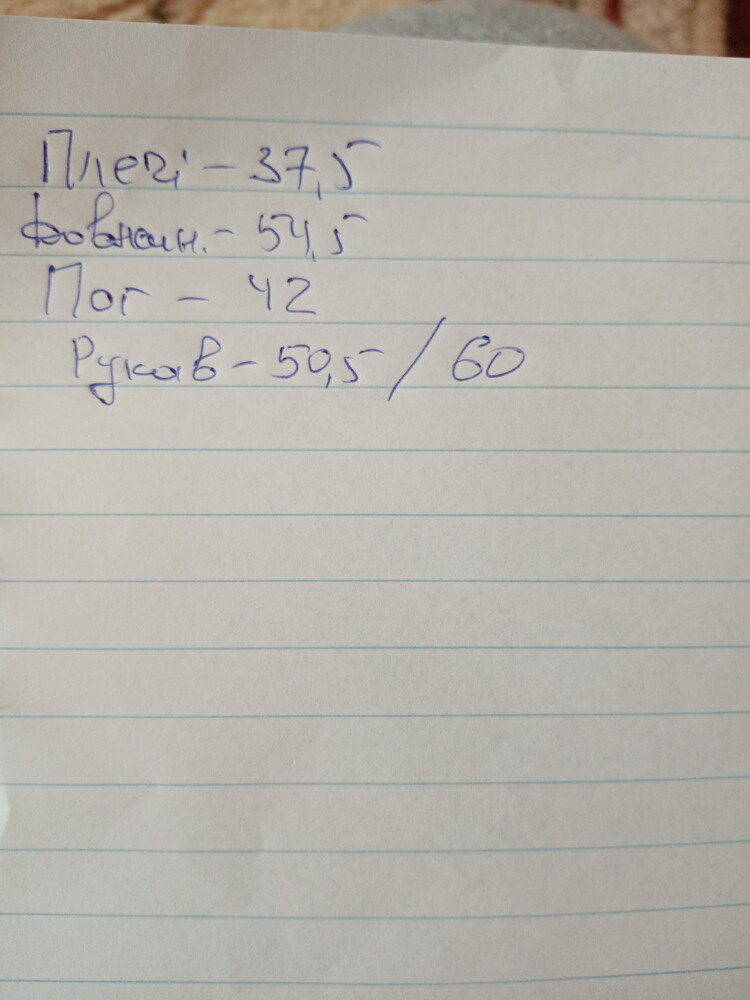 Плечі - 37,5
Довжин. - 54,5
Пог - 42
Рукав - 50,5 / 60